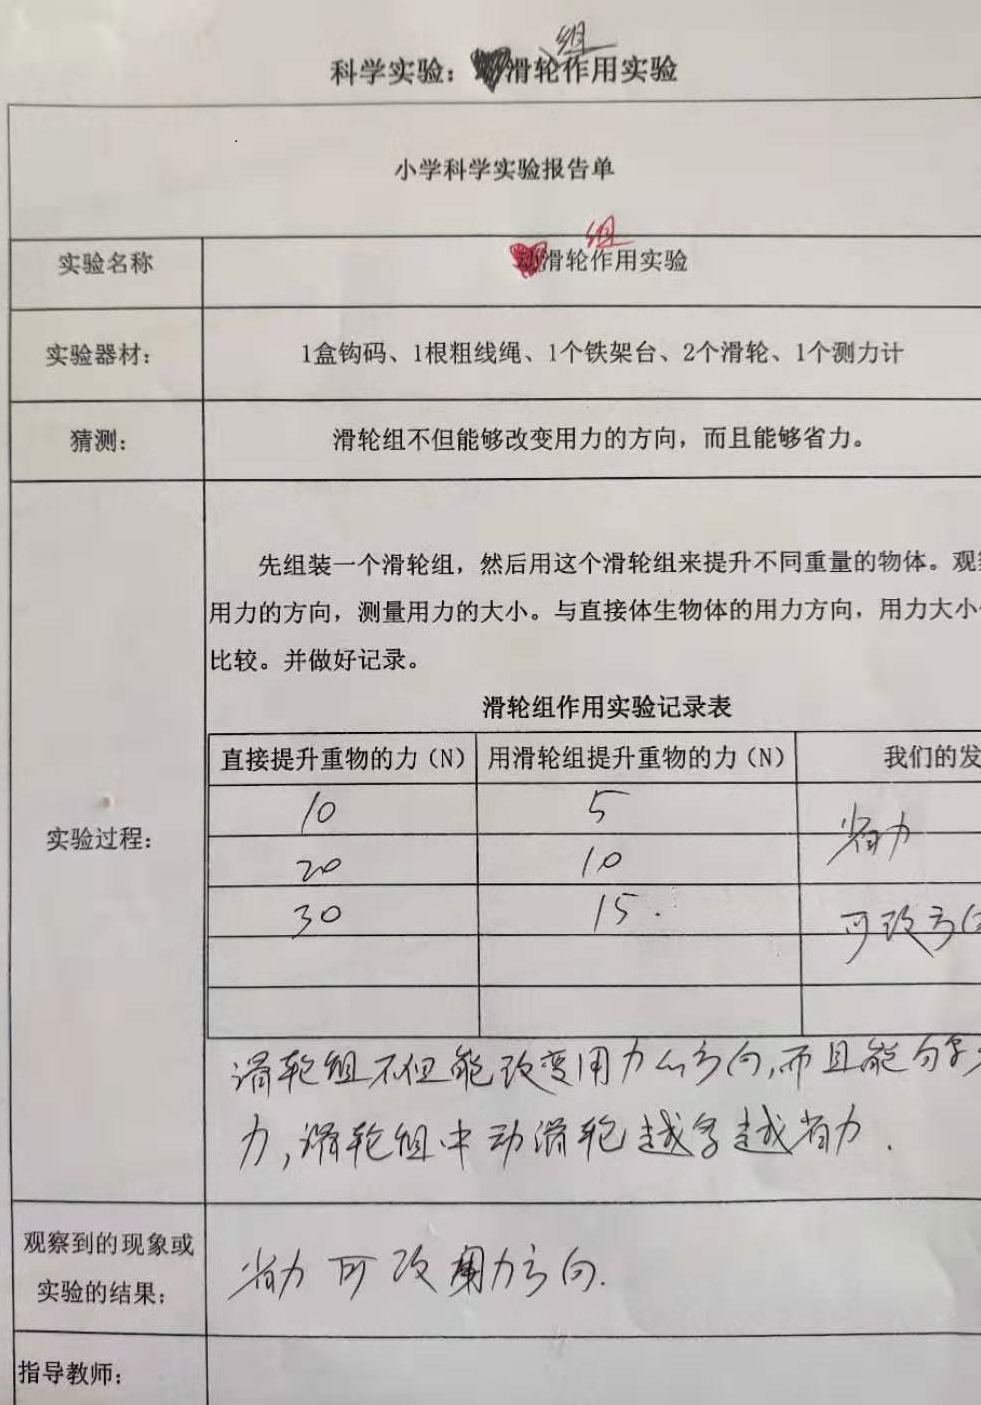 科学实验：滑轮组作用实验
小学科学实验报告单
实验名称
动滑轮组作用实验
实验器材：
1盒钩码、1根粗线绳、1个铁架台、2个滑轮、1个测力计
猜测：
滑轮组不但能够改变用力的方向，而且能够省力。
实验过程：
先组装一个滑轮组，然后用这个滑轮组来提升不同重量的物体。观
用力的方向，测量用力的大小。与直接体生物体的用力方向，用力大小
比较。并做好记录。
滑轮组作用实验记录表
直接提升重物的力（N） 用滑轮组提升重物的力（N） 我们的发
10 5
省力
20 10
30 15.
可改方向
滑轮组不但能改变用力的方向,而且能够省
力,滑轮组中动滑轮越多越省力.
观察到的现象或
实验的结果：
省力 可改用力方向.
指导教师：